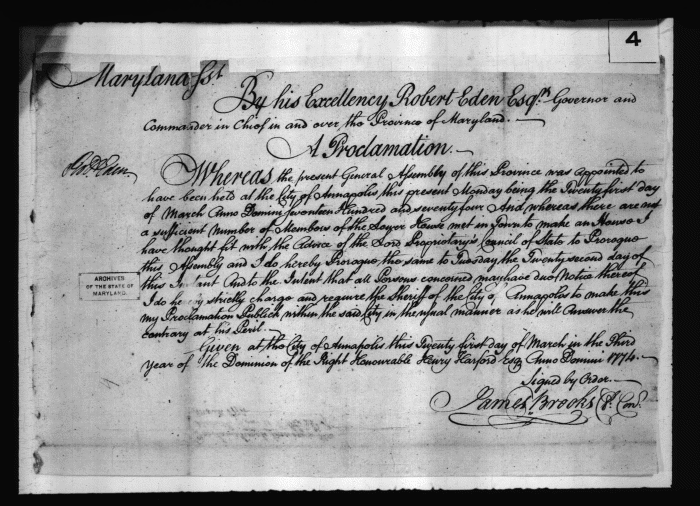 4
Maryland Sst
By his Excellency Robert Eden Esqr. Governor and
Commander in Chief in and over the Province of Maryland.
A Proclamation.
Robt Eden
Whereas the present General Assembly of this Province was appointed to
have been held at the City of Annapolis this present Monday being the Twenty first day
of March Anno Domini Seventeen Hundred and seventy four And whereas there are not
a sufficient number of Members of the Lower House met in Town to make an House I
have thought fit with the Advice of the Lord Proprietary's Council of State to Prorogue
this Assembly and I do hereby Prorogue the same to Tuesday the Twenty second day of
this Instant And to the Intent that all Persons concerned may have due Notice thereof
I do hereby strictly charge and require the Sheriff of the City of Annapolis to make this
my Proclamation Publick within the said City in the usual manner as he will Answer the
contrary at his Peril.
Given at the City of Annapolis this Twenty first day of March in the Third
Year of the Dominion of the Right Honourable Henry Harford Esqr Anno Domini 1774.
Signed by Order.
James Brooks Cl. Con.
ARCHIVES
OF THE STATE OF
MARYLAND.